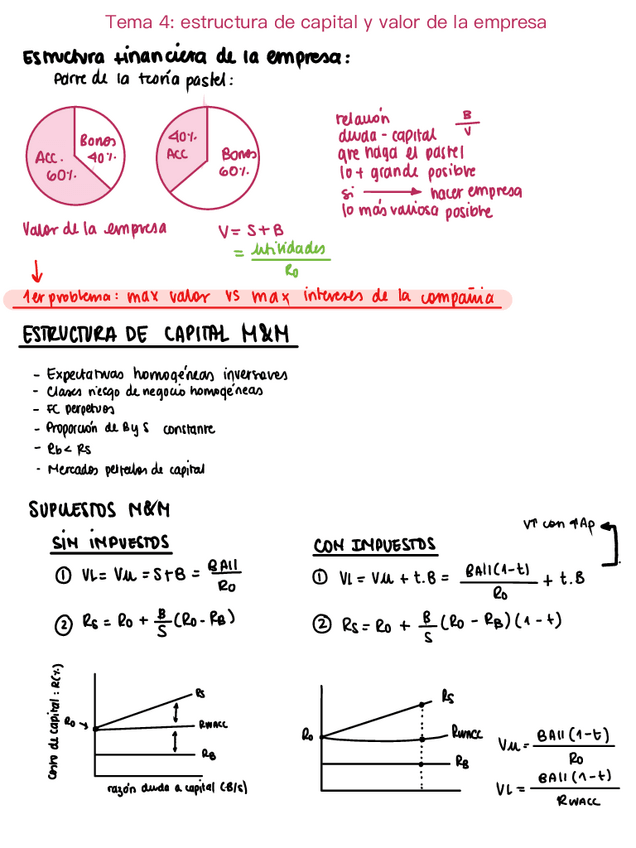 Tema 4: estructura de capital y valor de la empresa
Estructura financiera de la empresa:
Parte de la teoría pastel:
Acc. 60%.
Bonos 40%.
40% ACC
Bonos 60%.
relación B/V
deuda - capital
que haga el pastel
lo + grande posible
si ⟶ hacer empresa
lo más valiosa posible
Valor de la empresa
V = S + B
= Utilidades / Ro
1er problema: max valor vs max intereses de la compañia
ESTRUCTURA DE CAPITAL M&M
- Expectativas homogéneas inversores
- Clases riesgo de negocio homogéneas
- FC perpetuos
- Proporción de B y S constante
- Rb < Rs
- Mercados perfectos de capital
SUPUESTOS M&M
SIN IMPUESTOS
① VL = Vu = S+B = BAII / Ro
② Rs = Ro + B/S (Ro - RB)
V↑ con ↑Ap
CON IMPUESTOS
① VL = Vu + t.B = BAII(1-t) / Ro + t.B
② Rs = Ro + B/S (Ro - RB)(1-t)
Costo de capital: R(%)
Ro
Rs
RWACC
RB
razón deuda a capital (B/S)
Ro
Rs
RWACC
RB
Vu = BAII(1-t) / Ro
VL = BAII(1-t) / RWACC